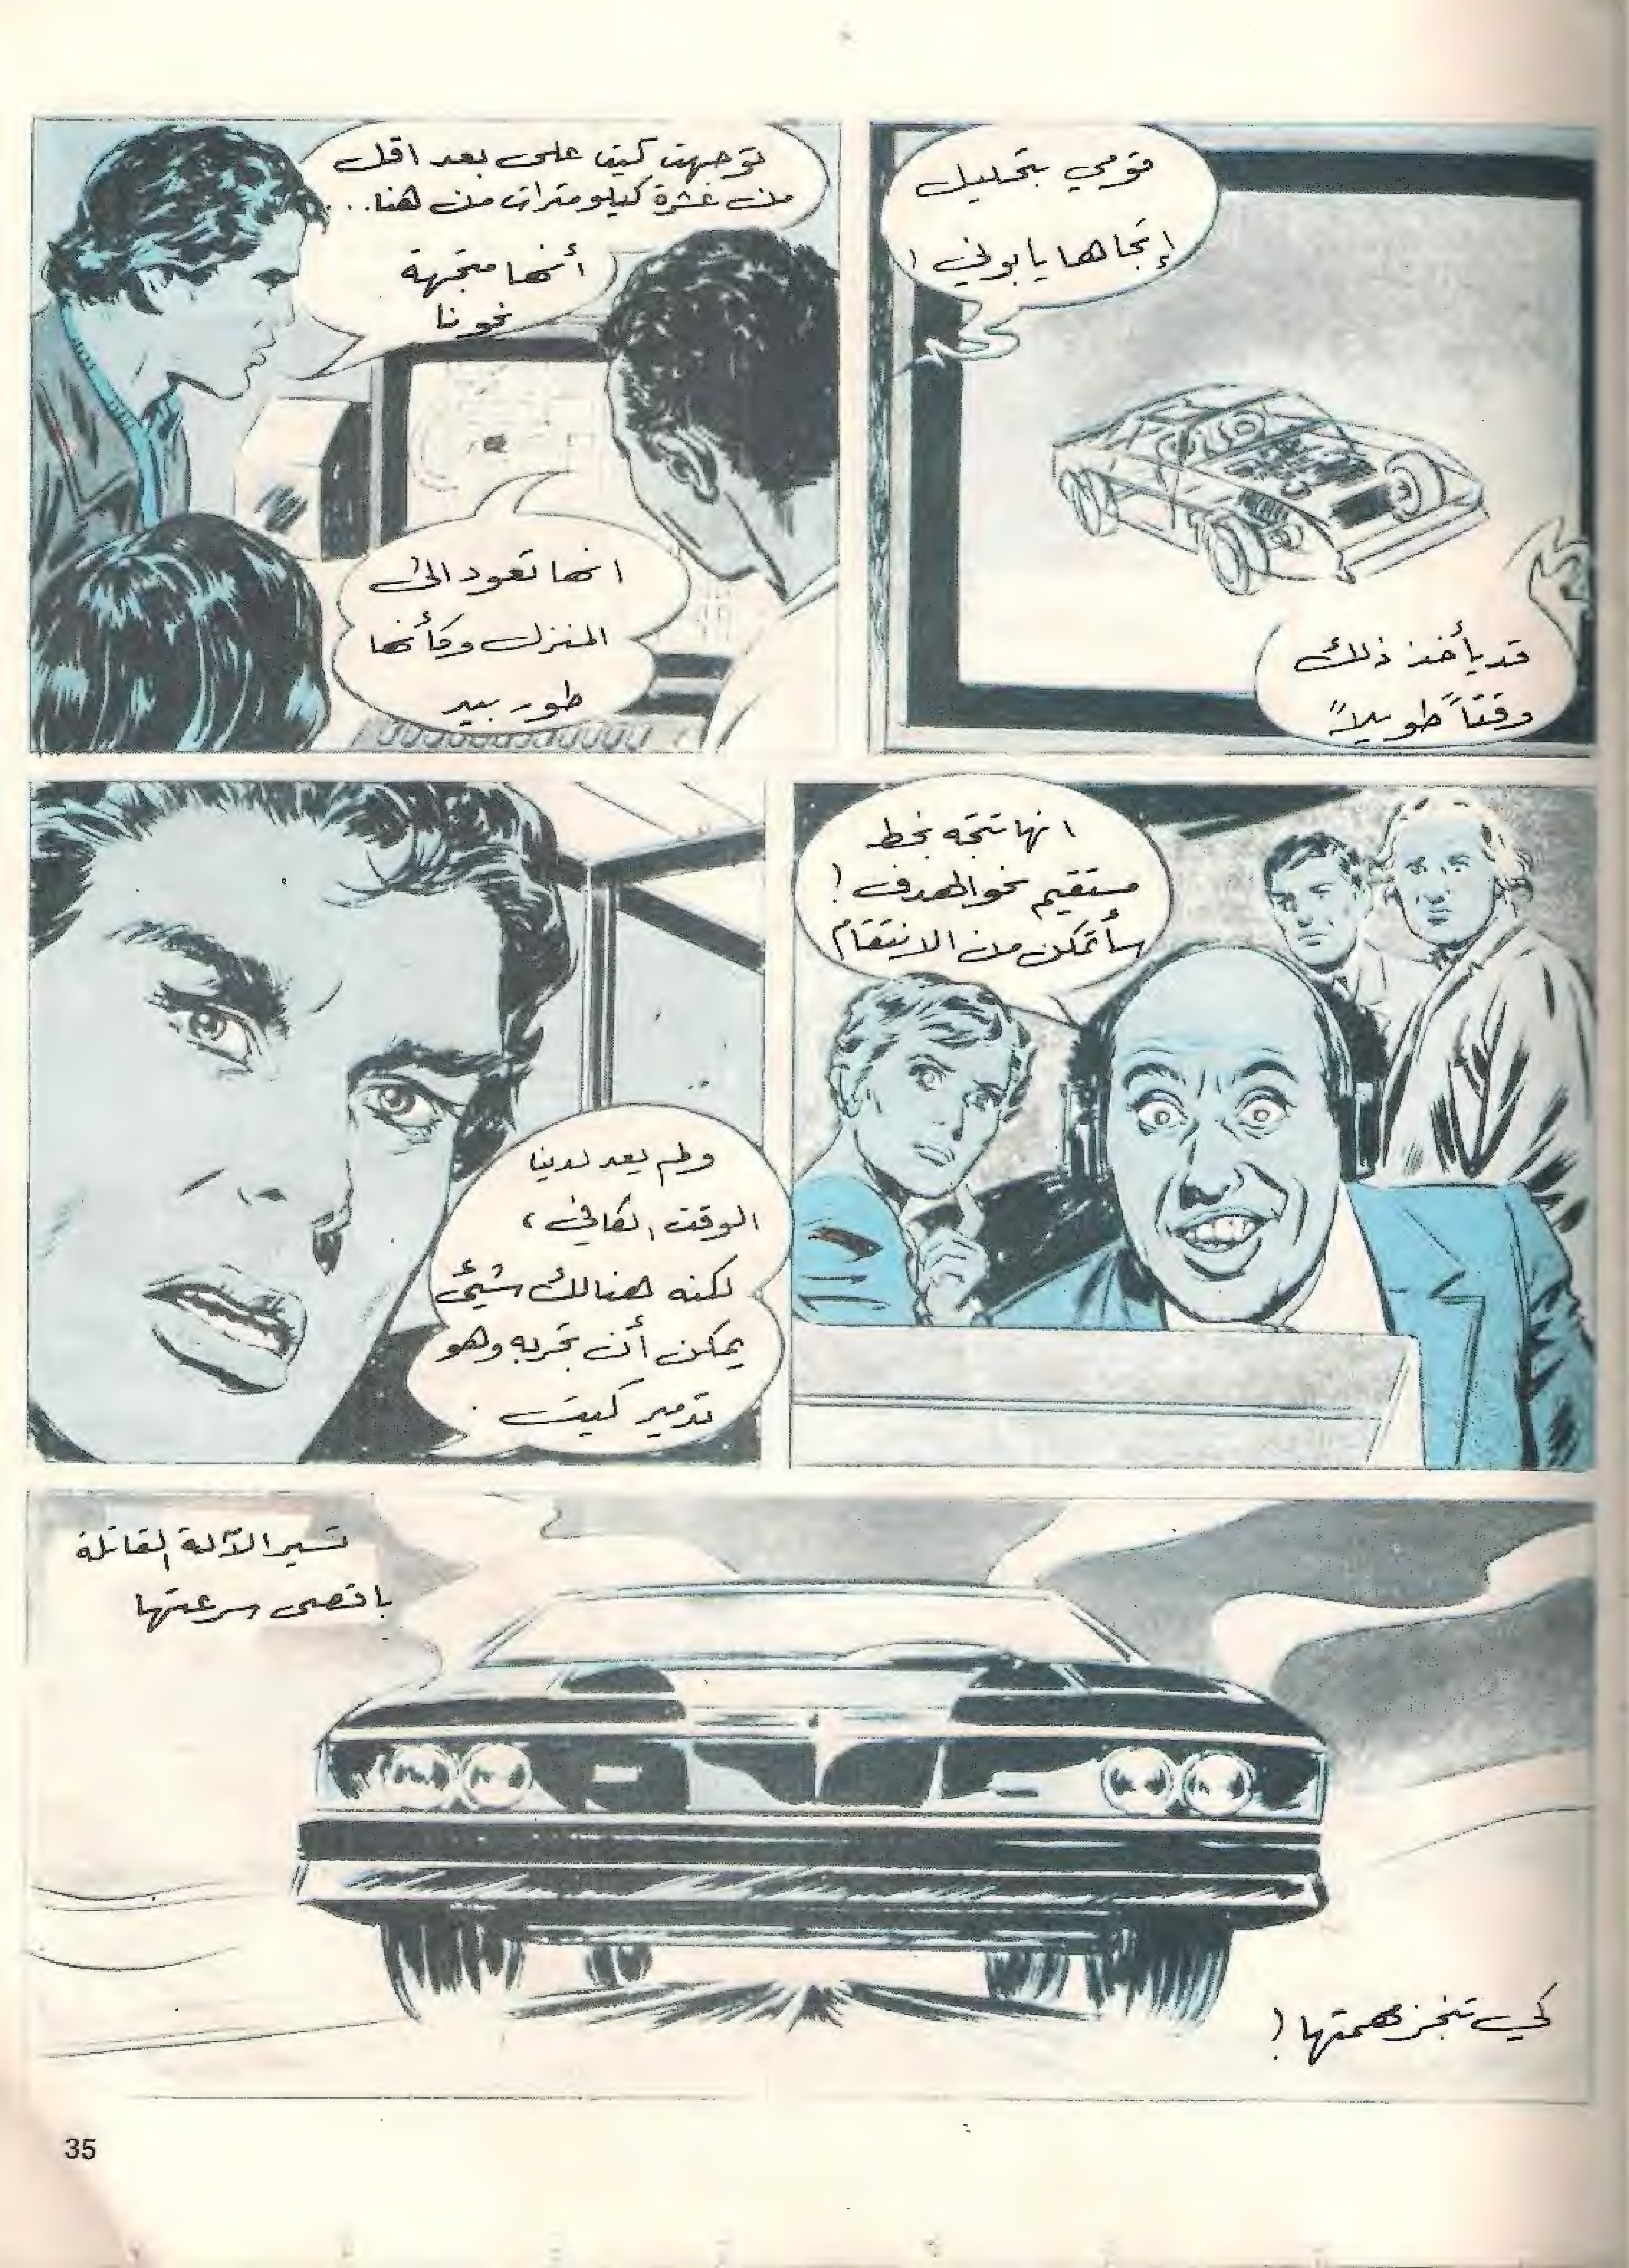 قومي بتحليل
إتجاهها يا بوني!
قد يأخذ ذلك
وقتاً طويلاً
توجهت كيت على بعد اقل
من عشرة كيلو مترات من هنا...
أنها متجهة
نحونا
انها تعود الى
المنزل وكأنها
طور بيد
انها تتجه بخط
مستقيم نحو الهدف!
سأتمكن من الانتقام
ولم يعد لدينا
الوقت الكافي،
لكنه هنالك شيئ
يمكن أن نجربه وهو
تدمير كيت.
تسير الآلة القاتلة
باقصى سرعتها
كي تنجز مهمتها!
35